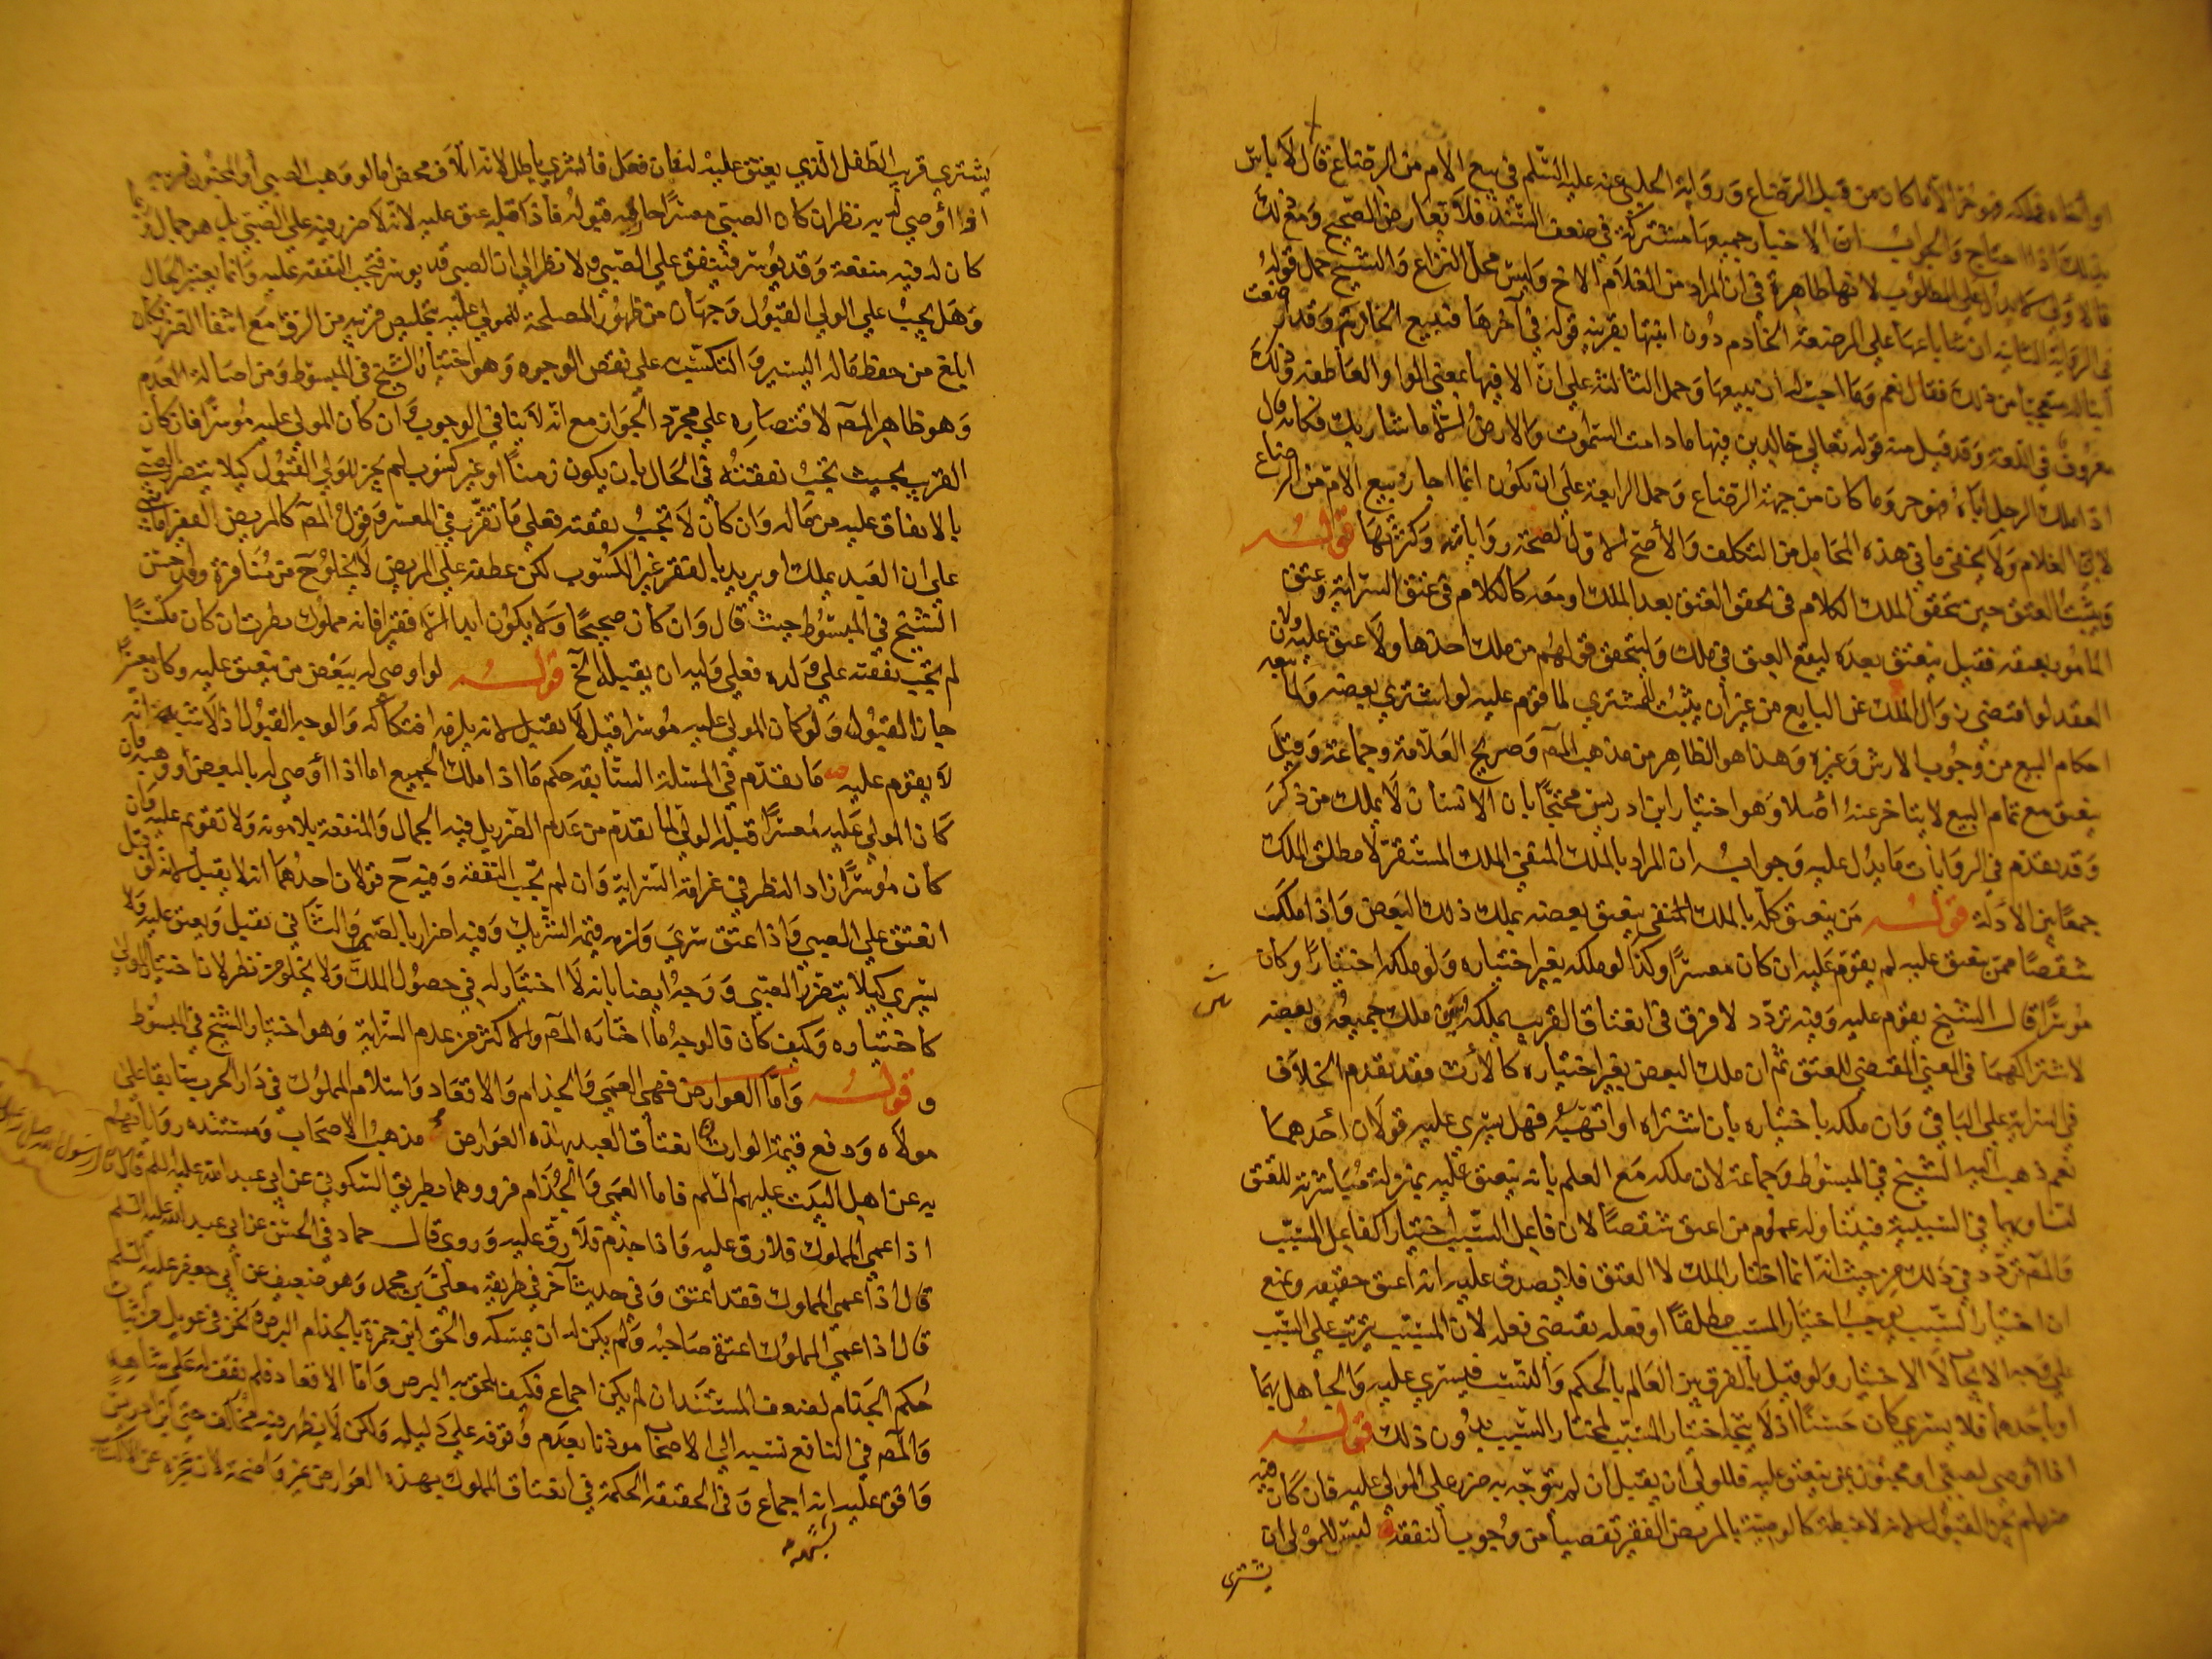 او اخاه فملكه فهو حر الا ما كان من قبل الرضاع ورواية الحلبي عنه عليه السلم في بيع الام من الرضاع قال لا باس
بذلك اذا احتاج والجواب ان الاخبار جميعها مشتركة في ضعف السند فلا تعارض الصحيح ومع ذلك
فالاولى لا يدل على المطلوب لانها ظاهرة في ان المراد من الغلام الاخ وليس محل النزاع والشيخ حمل قوله
في الرواية الثانية ان شا باعها على المرضعة الخادم دون ابنها بقرينة قوله في آخرها فتبيع الخادم وقد ارضعت
ابنا له متعجبا من ذلك فقال نعم وما احب له ان يبيعها وحمل الثالثة على ان الا فيها بمعنى الواو العاطفة وذلك
معروف في اللغة وقد قيل منه قوله تعالى خالدين فيها ما دامت السموات والارض الا ما شا ربك فكانه قال
اذا ملك الرجل اباه فهو حر وما كان من جهة الرضاع وحمل الرابعة على ان يكون انما اجاز بيع الام من الرضاع
لابي الغلام ولا يخفى ما في هذه المحامل من التكلف والأصح الاول لصحة رواياته وكثرتها قوله
ويثبت العتق حين تحقق الملك الكلام في تحقق العتق بعد الملك او معه كالكلام في عتق السراية وعتق
المامور بعتقه فقيل ينعتق بعده ليقع العتق في ملك وليتحقق قولهم من ملك احدها ولا عتق عليه ولان
العقد لو اقتضى زوال الملك عن البايع من غير ان يثبت للمشتري لما قوم عليه لو اشترى بعضه ولما تبعه
احكام البيع من وجوب الارش وغيره وهذا هو الظاهر من مذهب المص وصريح العلامة وجماعة وقيل
ينعتق مع تمام البيع لا يتاخر عنه اصلا وهو اختيار ابن ادريس محتجا بان الانسان لا يملك من ذكر
وقد تقدم في الروايات ما يدل عليه وجوابه ان المراد بالملك المنفي الملك المستقر لا مطلق الملك
جمعا بين الادلة قوله من ينعتق كله بالملك المنفي ينعتق بعضه بملك ذلك البعض واذا ملك
شقصا ممن ينعتق عليه لم يقوم عليه ان كان معسرا وكذا لو ملكه بغير اختياره ولو ملكه اختيارا وكان
موسرا قال الشيخ يقوم عليه وفيه تردد لا فرق في انعتاق القريب بملكه بين ملك جميعه وبعضه
لاشتراكهما في المعنى المقتضي للعتق ثم ان ملك البعض بغير اختياره كالارث فقد تقدم الخلاف
في السراية على الباقي وان ملكه باختياره بان اشتراه او اتهبه فهل يسري عليه قولان احدهما
نعم ذهب اليه الشيخ في المبسوط وجماعة لان ملكه مع العلم بانه ينعتق عليه بمنزلة مباشرته للعتق
لتساويهما في السببية فيتناوله عموم من اعتق شقصا لان فاعل السبب اختيارا كفاعل المسبب
والمص تردد في ذلك من حيث انه انما اختار الملك لا العتق فلا يصدق عليه انه اعتق حقيقة ومنع
ان اختيار السبب يوجب اختيار المسبب مطلقا او فعله يقتضي فعله لان المسبب يترتب على السبب
على وجه الايجاب لا الاختيار ولو قيل بالفرق بين العالم بالحكم والنسب فيسري عليه والجاهل بهما
او باحدهما فلا يسري كان حسنا اذ لا يتم اختيار المسبب لمختار السبب بدون ذلك قوله
اذا اوصي لصبي او مجنون بمن ينعتق عليه فللولي ان يقبل ان لم يتوجه به ضرر على المولى عليه فان كان فيه
ضرر لم يجز القبول لانه لا غبطة كالوصية بالمريض الفقير تفصيا من وجوب النفقة ليس للمولى ان
يشتري
يشتري قريب الطفل الذي ينعتق عليه لنفان فعل فالشرى باطل لانه اتلاف محض اما لو وهب الصبي او المجنون قريبه
او اوصي له به نظر ان كان الصبي معسرا جاز له قبوله فاذا قبله عتق عليه لانه لا ضرر فيه على الصبي بل هو جمال
كان له فيه منفعة وقد يوسر فينفق على الصبي ولا نظر الى ان الصبي قد يوسر فتجب النفقة عليه وانما يعتبر الحال
وهل يجب على الولي القبول وجهان من ظهور المصلحة للمولى عليه بتخليص قريبه من الرق مع انتفا الضرر فكان
ابلغ من حفظ ماله اليسير والتكسب على بعض الوجوه وهو اختيار الشيخ في المبسوط ومن اصالة العدم
وهو ظاهر المص لاقتصاره على مجرد الجواز مع انه لا ينافي الوجوب وان كان المولى عليه موسرا فان كان
القريب بحيث تجب نفقته في الحال بان يكون زمنا او غير كسوب لم يجز للولي القبول كيلا يتضرر الصبي
بالانفاق عليه من ماله وان كان لا تجب نفقته فعلى ما تقرر في المعسر وقول المص كالمريض الفقير
على ان العبد يملك او يريد بالفقر غير الكسوب لكن عطفه على المريض لا يخلو ح من منافرة وقد احسن
الشيخ في المبسوط حيث قال وان كان صحيحا ولا يكون ابدا الا فقيرا فانه مملوك نظرت ان كان مكتسبا
لم تجب نفقته على ولده فعلى وليه ان يقبله الخ قوله لو اوصى له ببعض من ينعتق عليه وكان معسرا
جاز القبول ولو كان المولى عليه موسرا قيل لا يقبل لانه يلزمه افتكاكه والوجه القبول اذ الاشبه انه
لا يقوم عليه ما تقدم في المسئلة السابقة حكم ما اذا ملك الجميع اما اذا اوصي له بالبعض او وهبه فان
كان المولى عليه معسرا قبل المولى لما تقدم من عدم الضرر بل فيه الجمال والمنفعة بلا مونة ولا تقويم عليه وان
كان موسرا زاد النظر في غرامة السراية وان لم تجب النفقة وفيه ح قولان احدهما انه لا يقبل لانه لو قبل
انعتق على الصبي واذا عتق سرى ولزمه قيمة الشريك وفيه اضرار بالصبي والثاني يقبل ويعتق عليه ولا
يسري كيلا يتضرر الصبي ووجه ايضا بانه لا اختيار له في حصول الملك ولا يخلو من نظر لان اختيار الولي
كاختياره وكيف كان فالوجه ما اختاره المص والاكثر من عدم السراية وهو اختيار الشيخ في المبسوط
و قوله واما العوارض فهي العمى والجذام والاقعاد واسلام المملوك في دار الحرب سابقا على
مولاه ودفع قيمة الوارث انعتاق العبد بهذه العوارض مذهب الاصحاب ومستنده رواياتهم
به عن اهل البيت عليهم السلم فاما العمى والجذام فرووهما بطريق السكوني عن ابي عبد الله عليه السلم قال
قال رسول الله صلى
اذا عمي المملوك فلا رق عليه واذا جذم فلا رق عليه وروى قال حماد في الحسن عن ابي عبد الله عليه السلم
قال اذا عمي المملوك فقد اعتق وفي حديث آخر في طريقه معلى بن محمد وهو ضعيف عن ابي جعفر عليه السلم
قال اذا عمي المملوك اعتقه صاحبه ولم يكن له ان يمسكه والحق ابن حمزة بالجذام البرص ونحن في عويل من اثبات
حكم الجذام لضعف المستند ان لم يكن اجماع فكيف يلحق به البرص واما الاقعاد فلم نقف له على شاهد
والمص في النافع نسبه الى الاصحاب موذنا بعدم وقوفه على دليله ولكن لا يظهر فيه مخالف حتى ابن ادريس
وافق عليه انه اجماع وفي الحقيقة الحكمة في انعتاق المملوك بهذه العوارض غير واضحة لان عجزه عن الاكتساب